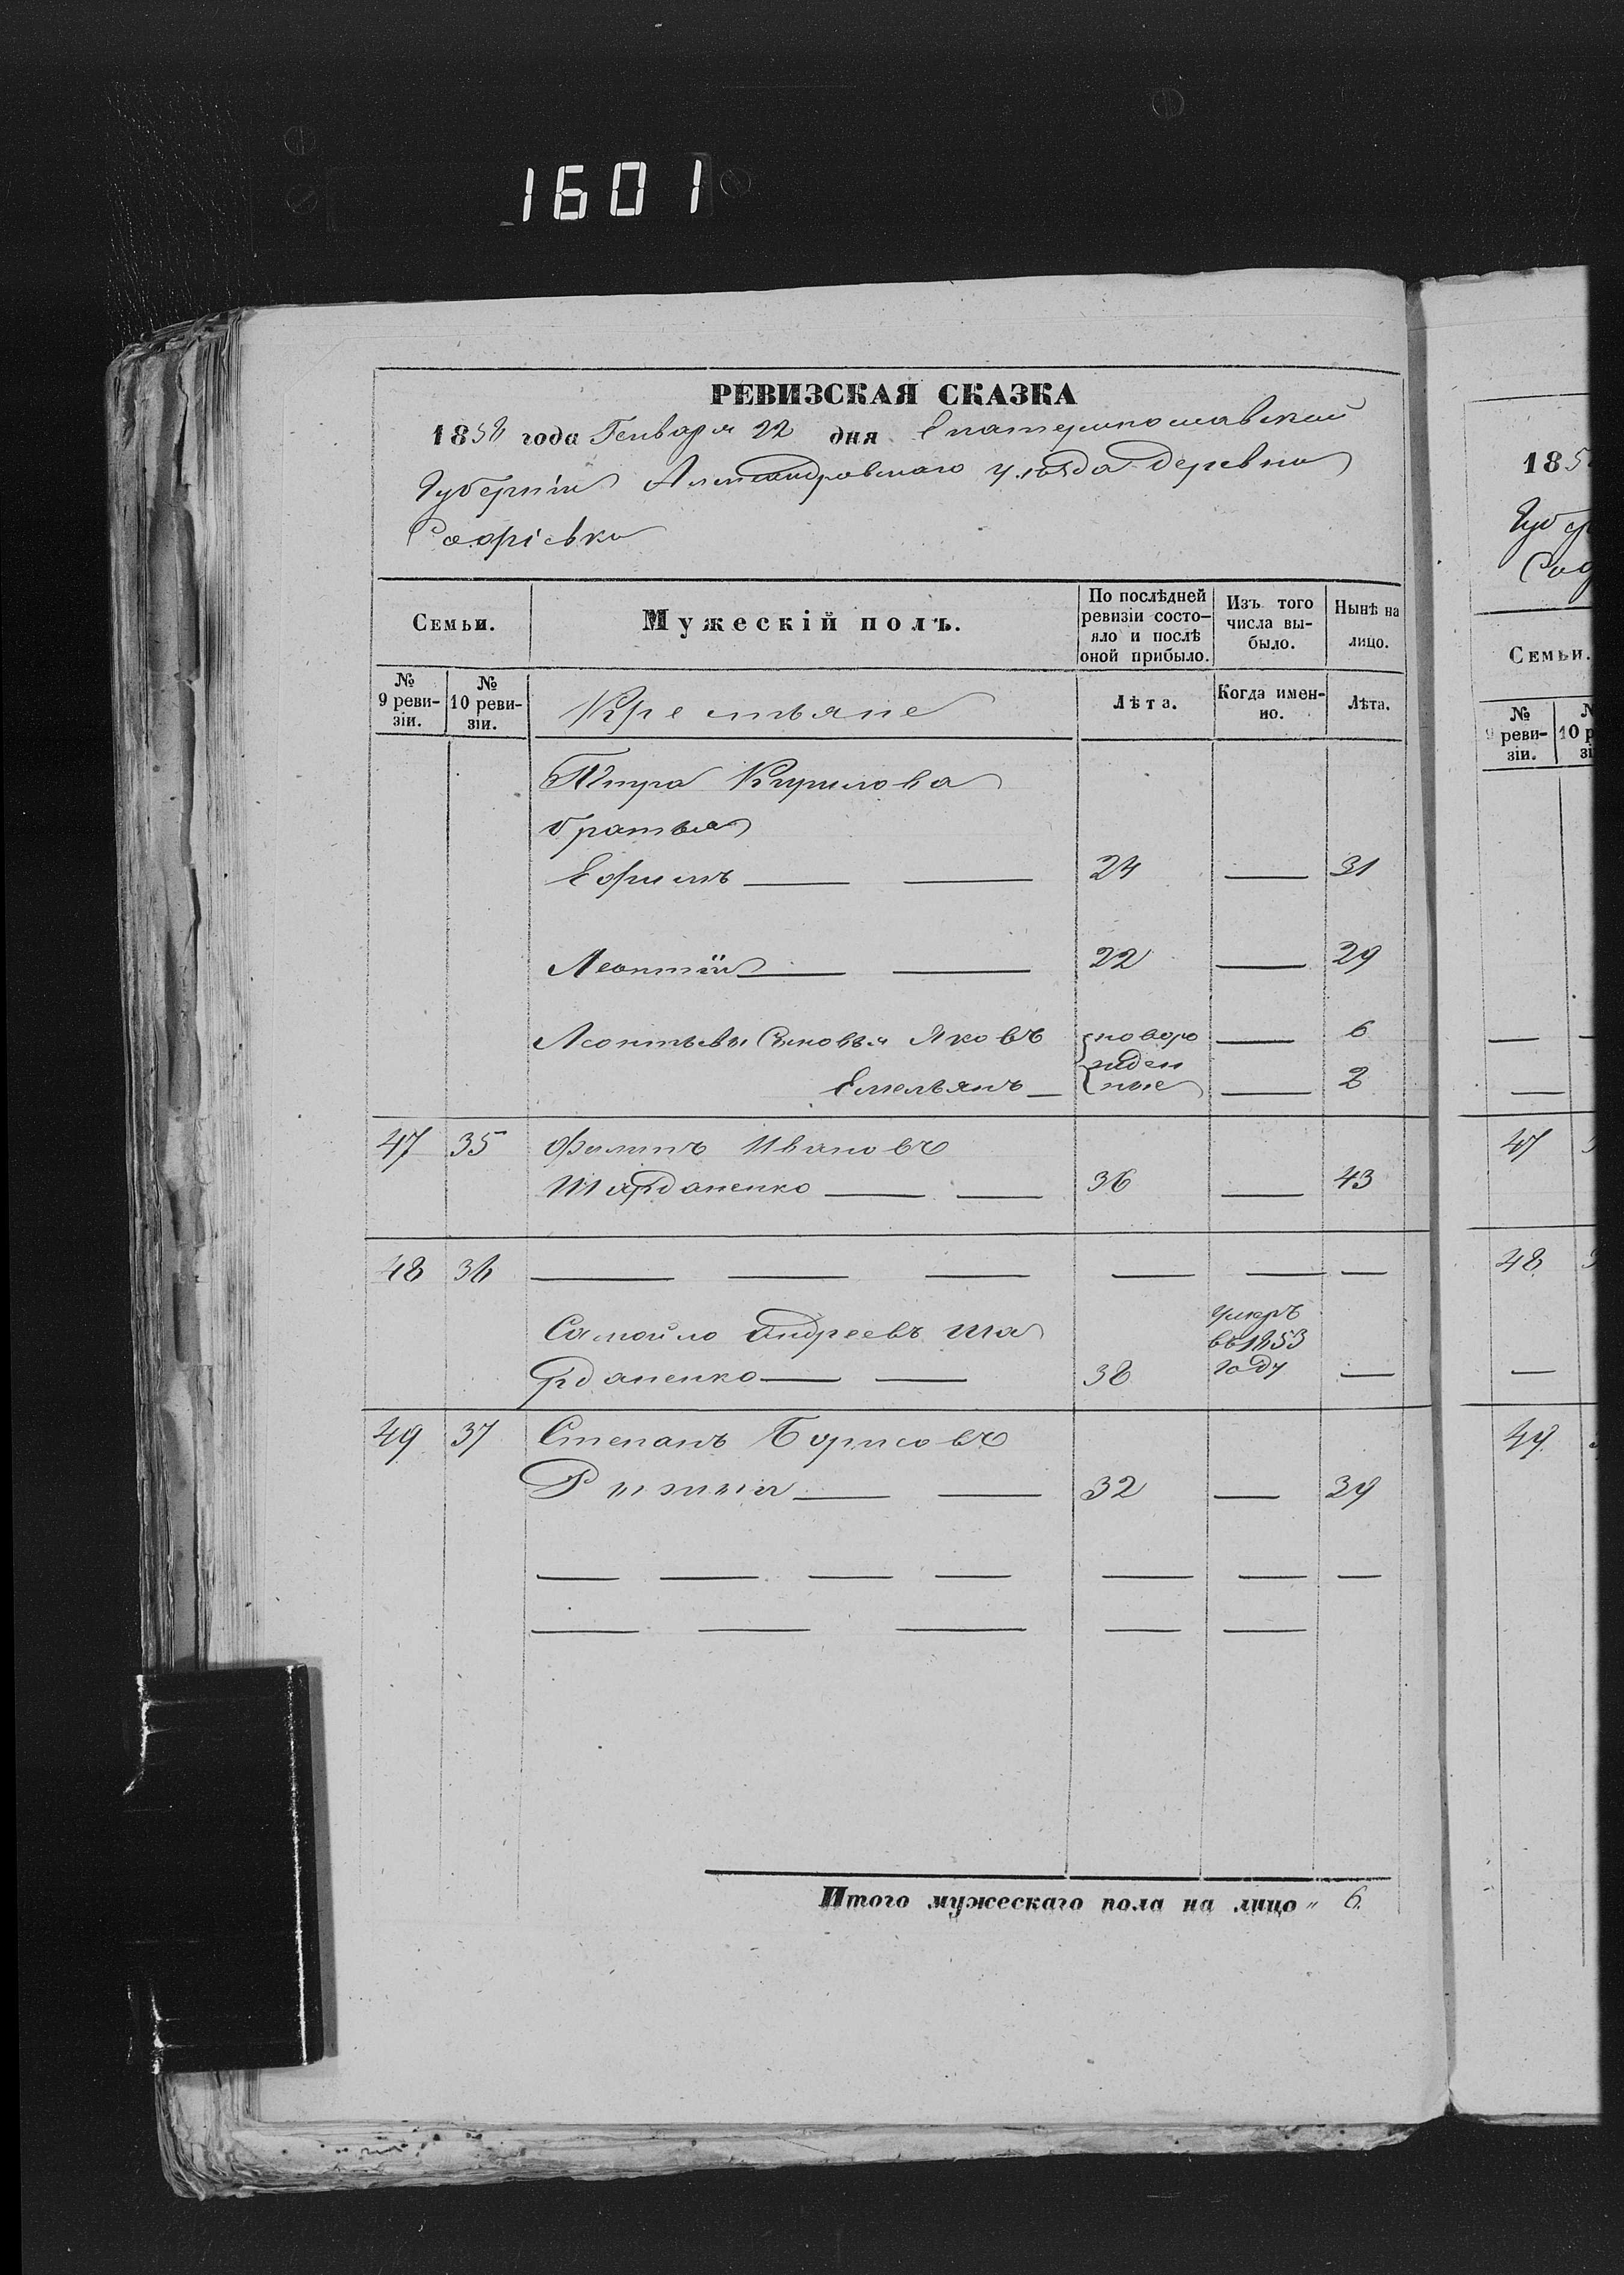 1601
РЕВИЗСКАЯ СКАЗКА
1858 года Генваря 22 дня Екатеринославской
Губерніи Александровскаго уѣзда деревни
Софіевки
Семьи. Мужескій полъ. По послѣдней ревизіи состояло и послѣ оной прибыло. Изъ того числа выбыло. Нынѣ на лицо.
№ 9 ревизіи. № 10 ревизіи. Крестьяне Лѣта. Когда именно. Лѣта.
Петра Кирилова
братья
Ефимъ 24 — 31
Леонтій 22 — 29
Леонтьевы Сыновья Яковъ новоро — 6
жден
Емельянъ ные — 2
47 35 Филипъ Ивановъ
36 — 43
48 36 — — — — — —
Умеръ
Самойло Андреевъ Ша въ 1853
38 году —
49 37 Степанъ Борисовъ
32 — 39
— — — — — — —
— — — — —
Итого мужескаго пола на лицо „ 6.
185
Губер
Соф
Семьи.
№ 9 ревизіи.
10 р
47
48
49